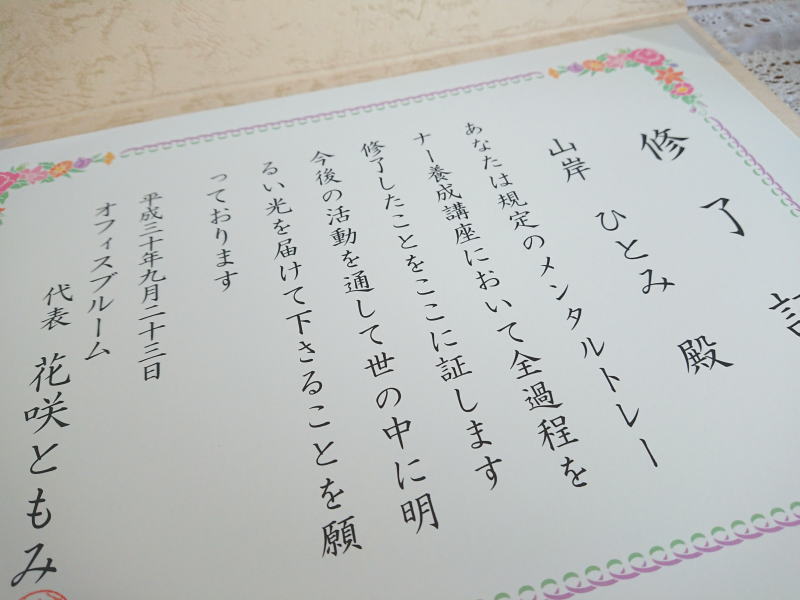 修了証
山岸 ひとみ 殿
あなたは規定のメンタルトレー
ナー養成講座において全過程を
修了したことをここに証します
今後の活動を通して世の中に明
るい光を届けて下さることを願
っております
平成三十年九月二十三日
オフィスブルーム
代表 花咲ともみ